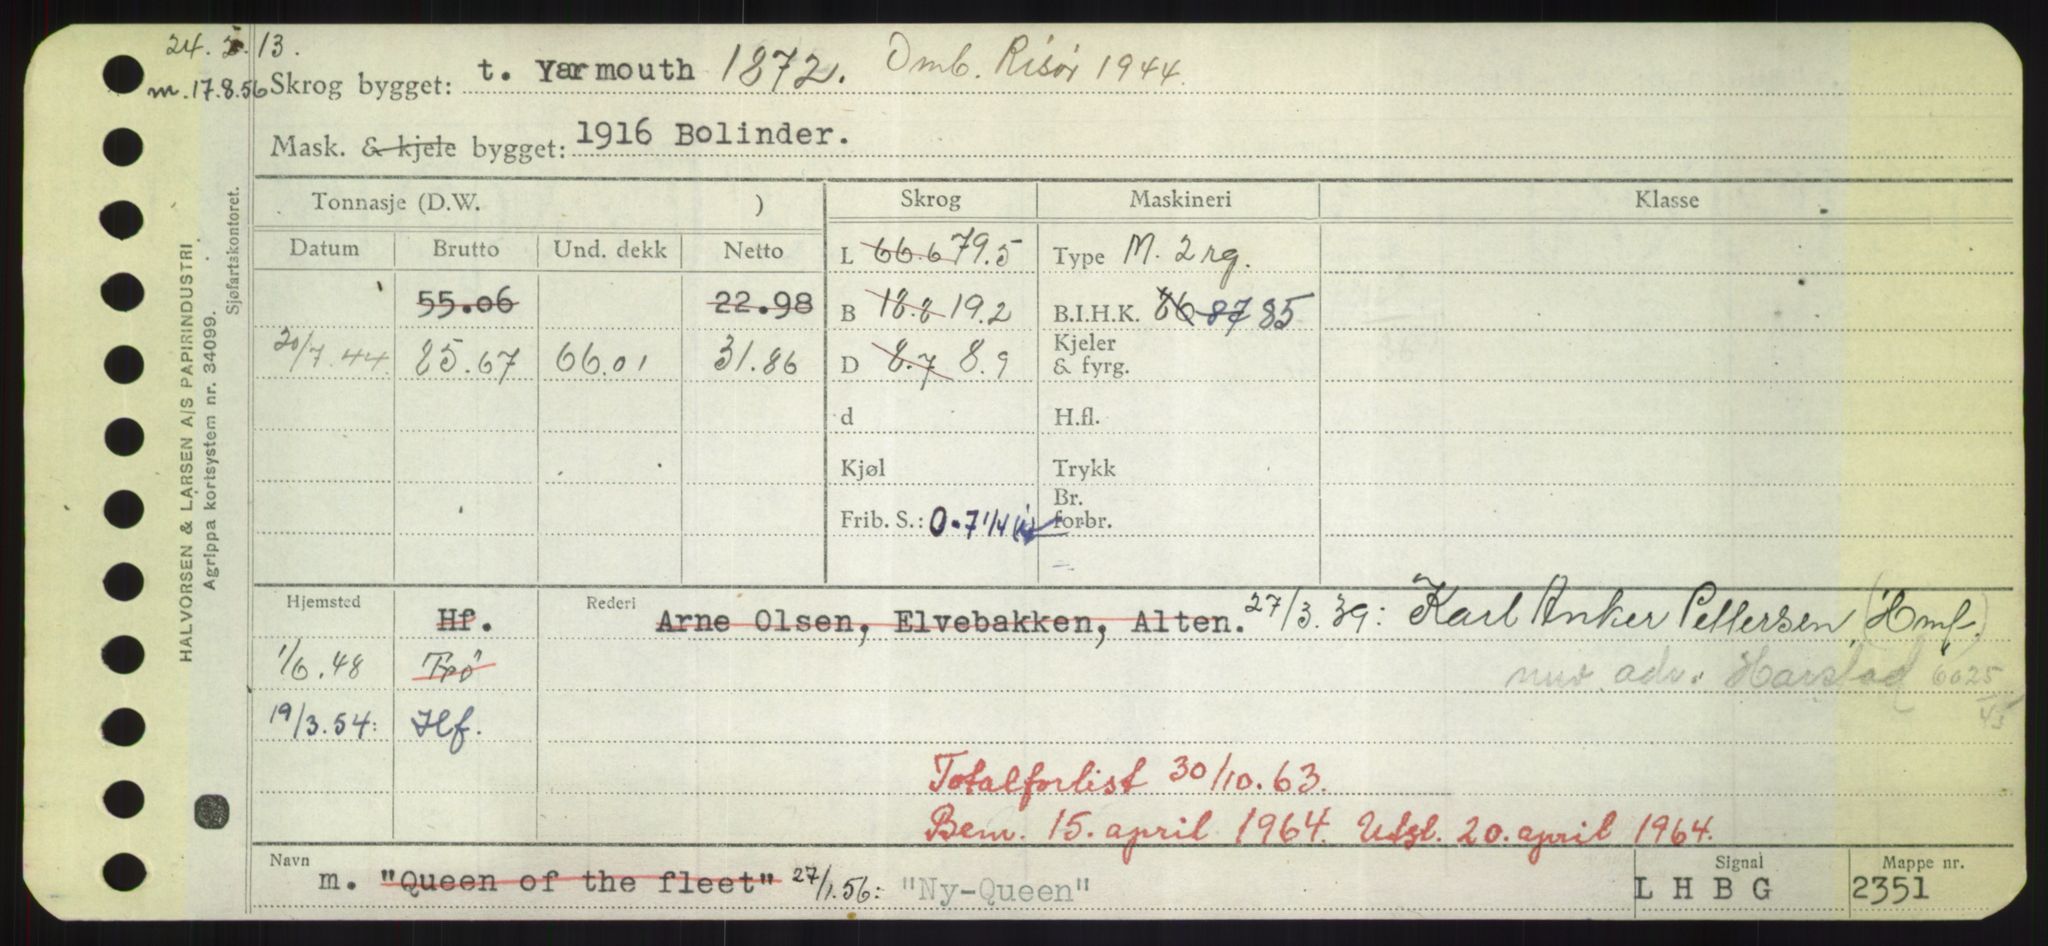 24. 13.
m. 17.8.56
Skrog bygget: t. Yarmouth 1872. Omb. Risør 1944.
Mask. & kjele bygget: 1916 Bolinder.
Tonnasje (D.W. ) Skrog Maskineri Klasse
Datum Brutto Und. dekk Netto L 66.6 79.5 Type M. 2 rg.
55.06 22.98 B 18.8 19.2 B.I.H.K. 86 87 85
20/7.44. 85.67 66.01 31.86 D 8.7 8.9 Kjeler & fyrg.
d H.fl.
Kjøl Trykk
Frib. S.: 0.7 1/4 Br. forbr.
Hjemsted Hf. Rederi Arne Olsen, Elvebakken, Alten. 27/3.39: Karl Anker Pettersen, (Hmf.)
1/6.48 Trö nuv. adr. Harstad 6025/45
19/3.54: Hf.
Totalforlist 30/10.63.
Bem. 15. april 1964. Udsl. 20. april 1964.
Navn m. "Queen of the fleet" 27/1.56: "Ny-Queen" Signal L H B G Mappe nr. 2351
HALVORSEN & LARSEN A/S PAPIRINDUSTRI
Agrippa kortsystem nr. 34099.
Sjøfartskontoret.